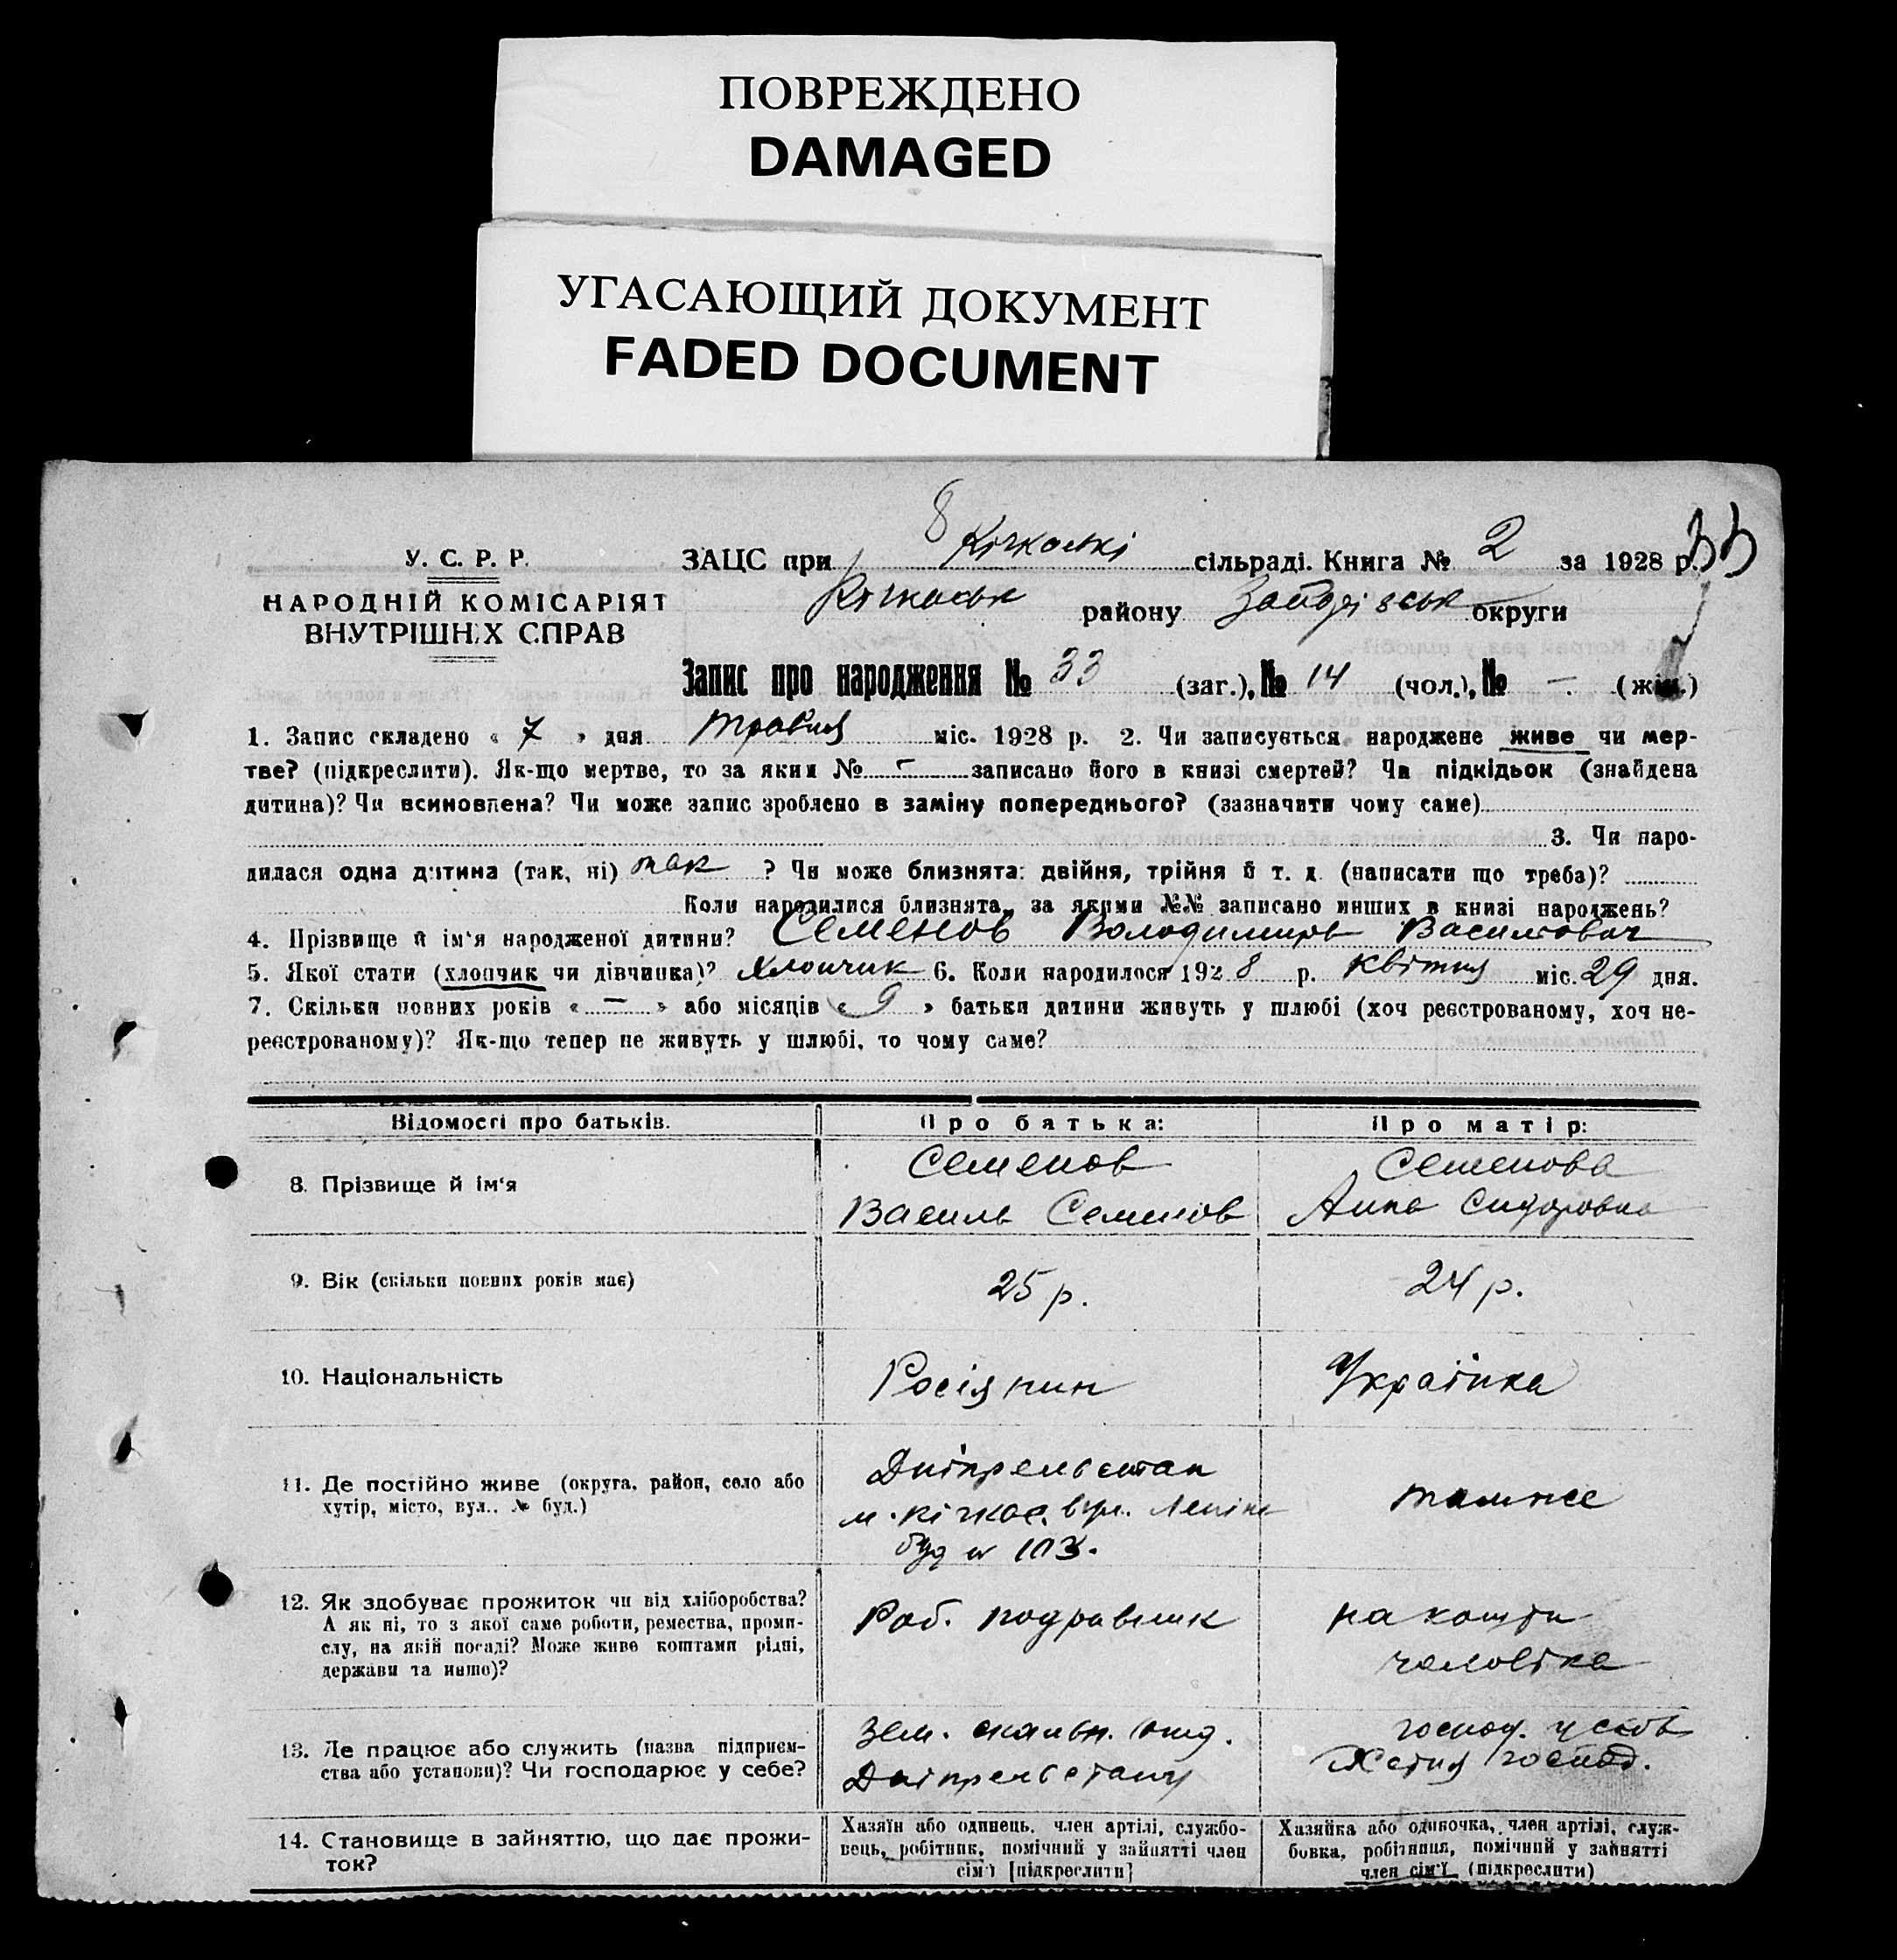 ПОВРЕЖДЕНО
DAMAGED
УГАСАЮЩИЙ ДОКУМЕНТ
FADED DOCUMENT
8
33
У. С. Р. Р.
НАРОДНІЙ КОМІСАРІЯТ
ВНУТРІШНІХ СПРАВ
ЗАЦС при Кічкаські сільраді. Книга № 2 за 1928 р.
Кічкаськ району округи
Запис про народження № 33 (заг.), № 14 (чол.), № – (жін.)
1. Запис складено « 7 » дня травня міс. 1928 р. 2. Чи записується народжене живе чи мер-
тве? (підкреслити). Як-що мертве, то за яким № – записано його в книзі смертей? Чи підкідьок (знайдена
дитина)? Чи всиновлена? Чи може запис зроблено в заміну попереднього? (зазначити чому саме)
3. Чи наро-
дилася одна дитина (так, ні) так ? Чи може близнята: двійня, трійня й т. д. (написати що треба)?
Коли народилися близнята, за якими №№ записано инших в книзі народжень?
4. Прізвище й ім'я народженої дитини? Семенов Володимиръ Василювич
5. Якої стати (хлопчик чи дівчинка)? Хлопчик 6. Коли народилося 1928 р. квітня міс. 29 дня.
7. Скільки повних років « – » або місяців « 9 » батьки дитини живуть у шлюбі (хоч реєстрованому, хоч не-
реєстрованому)? Як-що тепер не живуть у шлюбі, то чому саме?
Відомості про батьків. Про батька: Про матір:
8. Прізвище й ім'я
Семенов
Василь Семенов
Семенова
Анна Сидоровна
9. Вік (скільки повних років має) 25 р. 24 р.
10. Національність Росіянин Українка
11. Де постійно живе (округа, район, село або
хутір, місто, вул., № буд.)
Дніпрельстан
м. Кічкас, вул. Леніна
буд № 103.
тамже
12. Як здобуває прожиток чи від хліборобства?
А як ні, то з якої саме роботи, ремества, проми-
слу, на якій посаді? Може живе коштами рідні,
держави та инше)?
Роб. подравник
на кошти
чоловіка
13. Де працює або служить (назва підприєм-
ства або установи)? Чи господарює у себе?
Зем. скальн.
Дніпрельстану
господ. у себѣ
господ.
14. Становище в зайняттю, що дає прожи-
ток?
Хазяїн або одинець, член артілі, службо-
вець, робітник, помічний у зайнятті член
сім'ї [підкреслити]
Хазяйка або одиночка, член артілі, служ-
бовка, робітниця, помічний у зайнятті
член сім'ї (підкреслити)